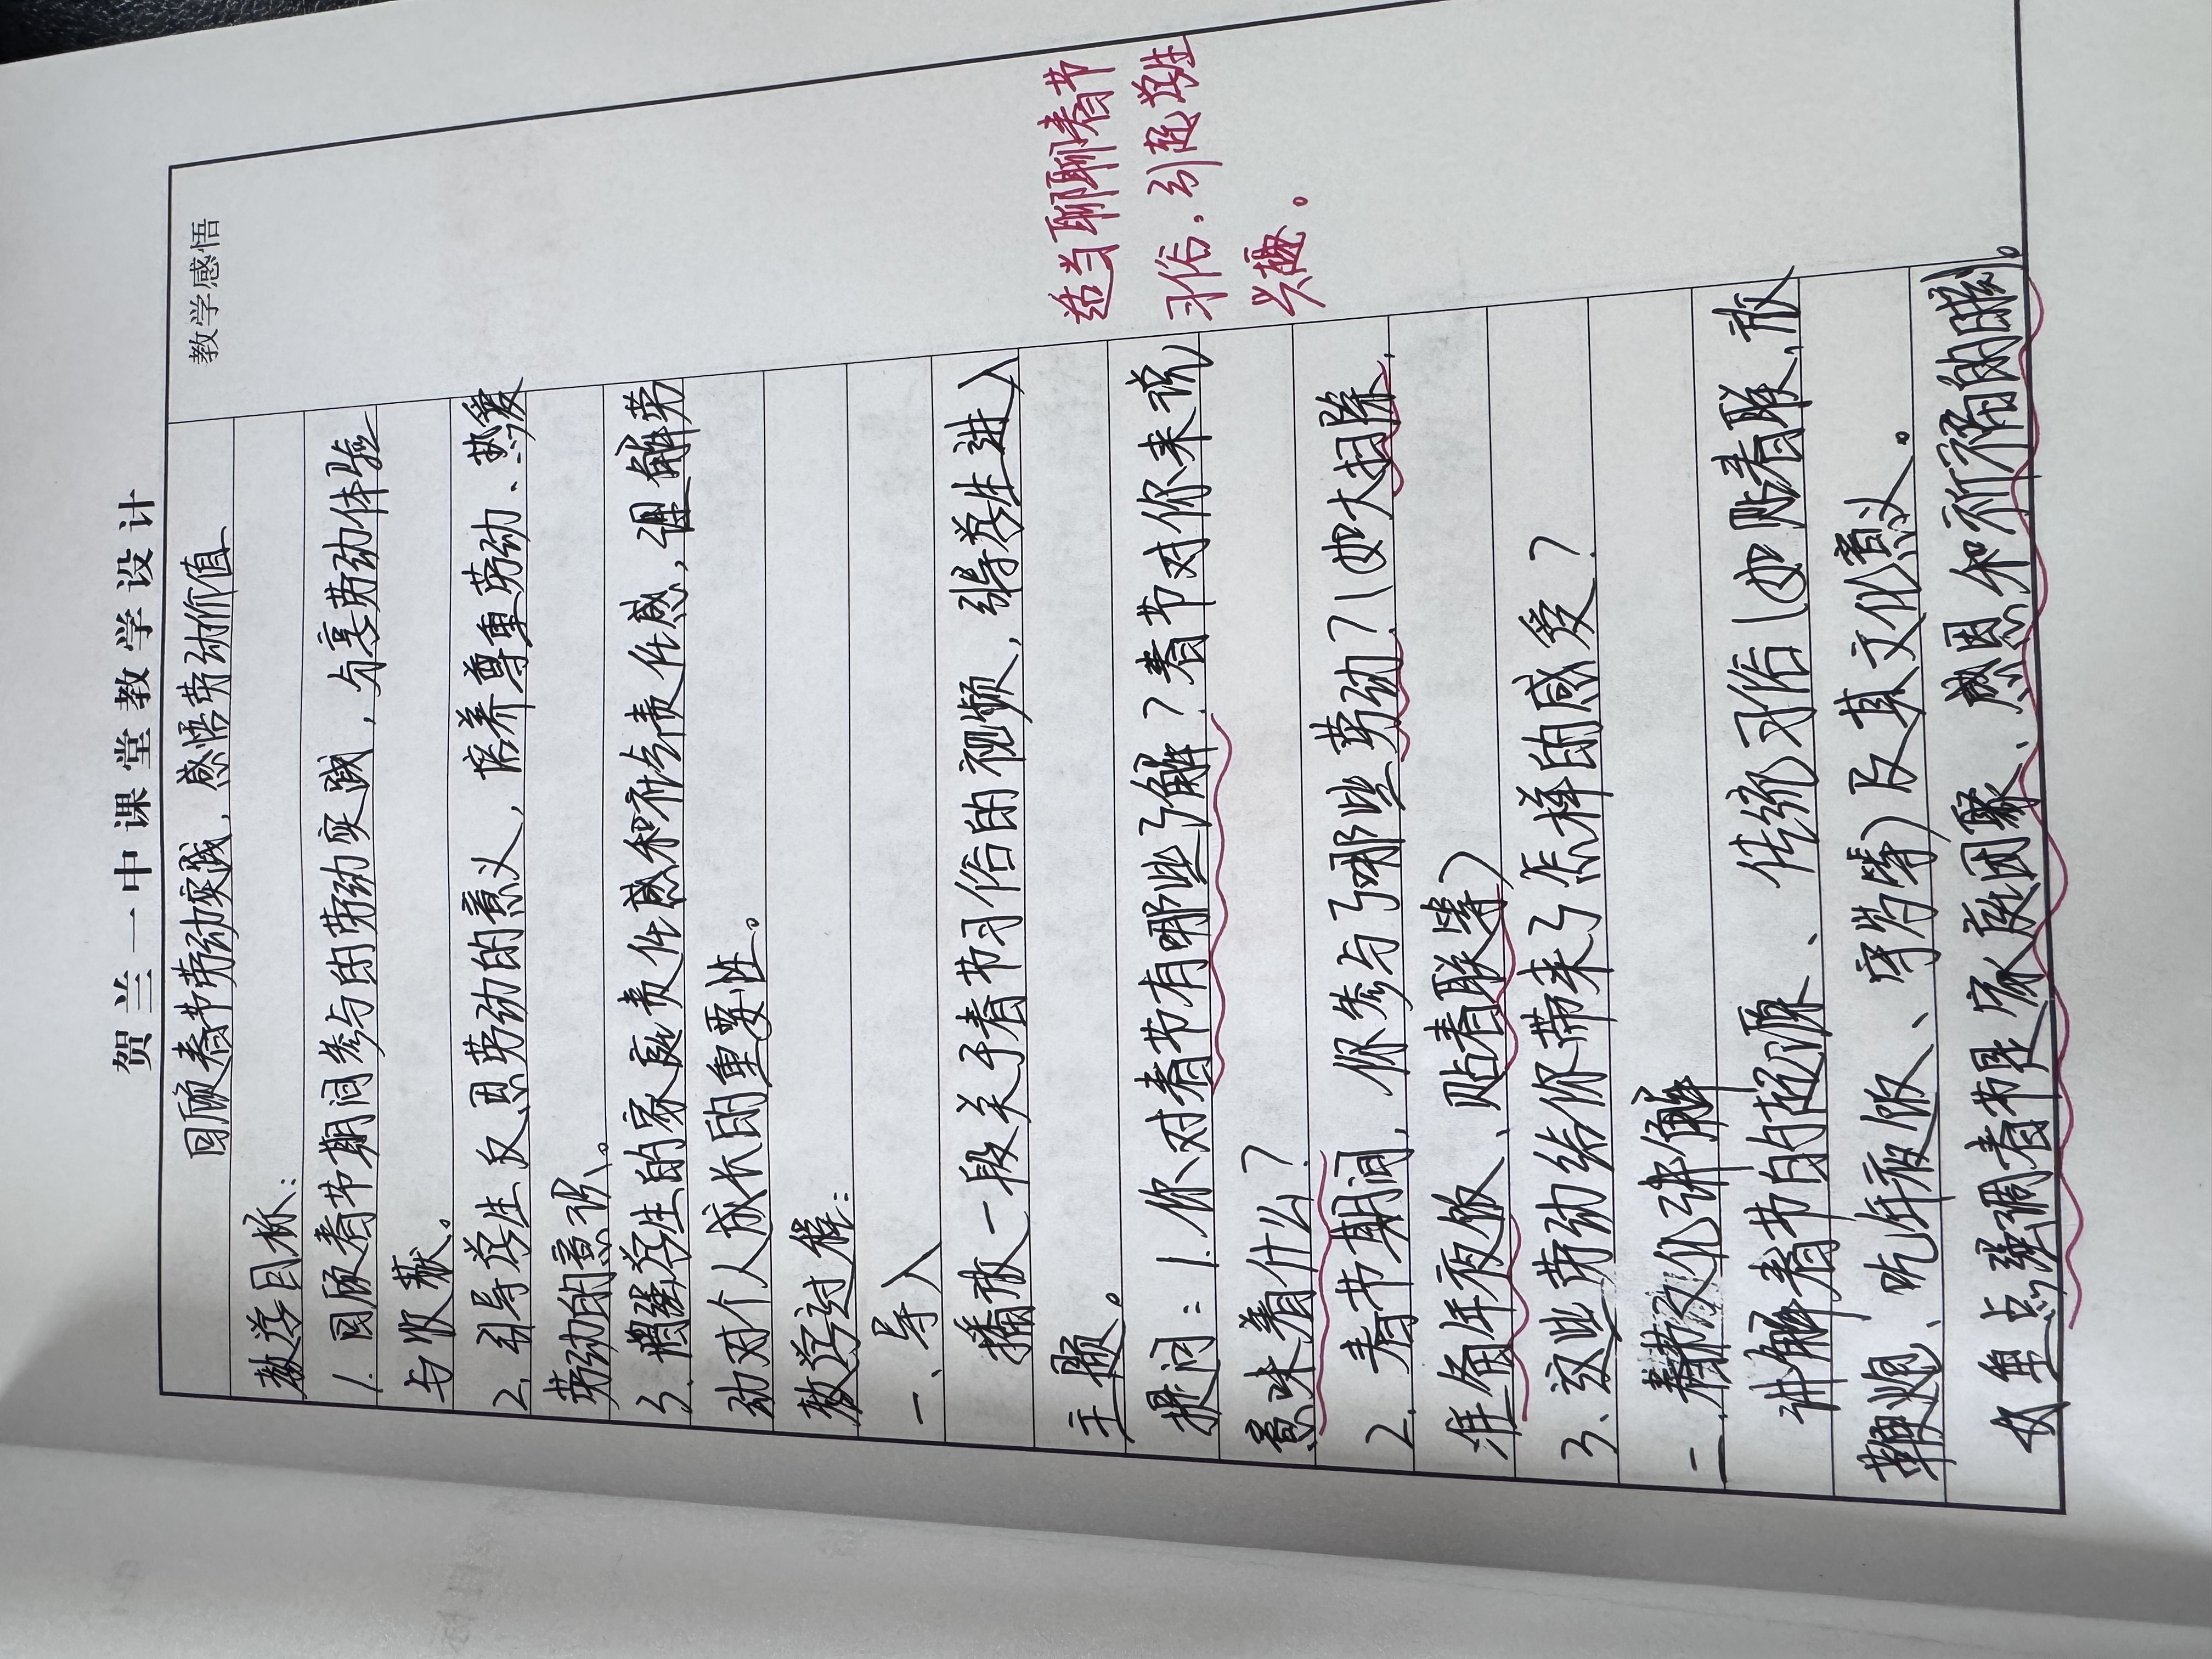 贺兰一中课堂教学设计
回顾春节劳动实践，感悟劳动价值
教学感悟
教学目标：
1. 回顾春节期间参与的劳动实践，分享劳动体验
与收获。
2. 引导学生反思劳动的意义，培养尊重劳动、热爱
劳动的意识。
3. 增强学生的家庭责任感和社会责任感，理解劳
动对个人成长的重要性。
教学过程：
一、导入
播放一段关于春节习俗的视频，引导学生进入
主题。
提问：1. 你对春节有哪些了解？春节对你来说
意味着什么？
2. 春节期间，你参与了哪些劳动？（如大扫除、
准备年夜饭、贴春联等）
3、这些劳动给你带来了怎样的感受？
适当聊聊春节
习俗，引起学生
兴趣。
二. 春节文化讲解
讲解春节的起源、传统习俗（如贴春联、放
鞭炮、吃年夜饭、守岁等）及其文化意义。
重点强调春节是家庭团聚、感恩和祈福的时刻。